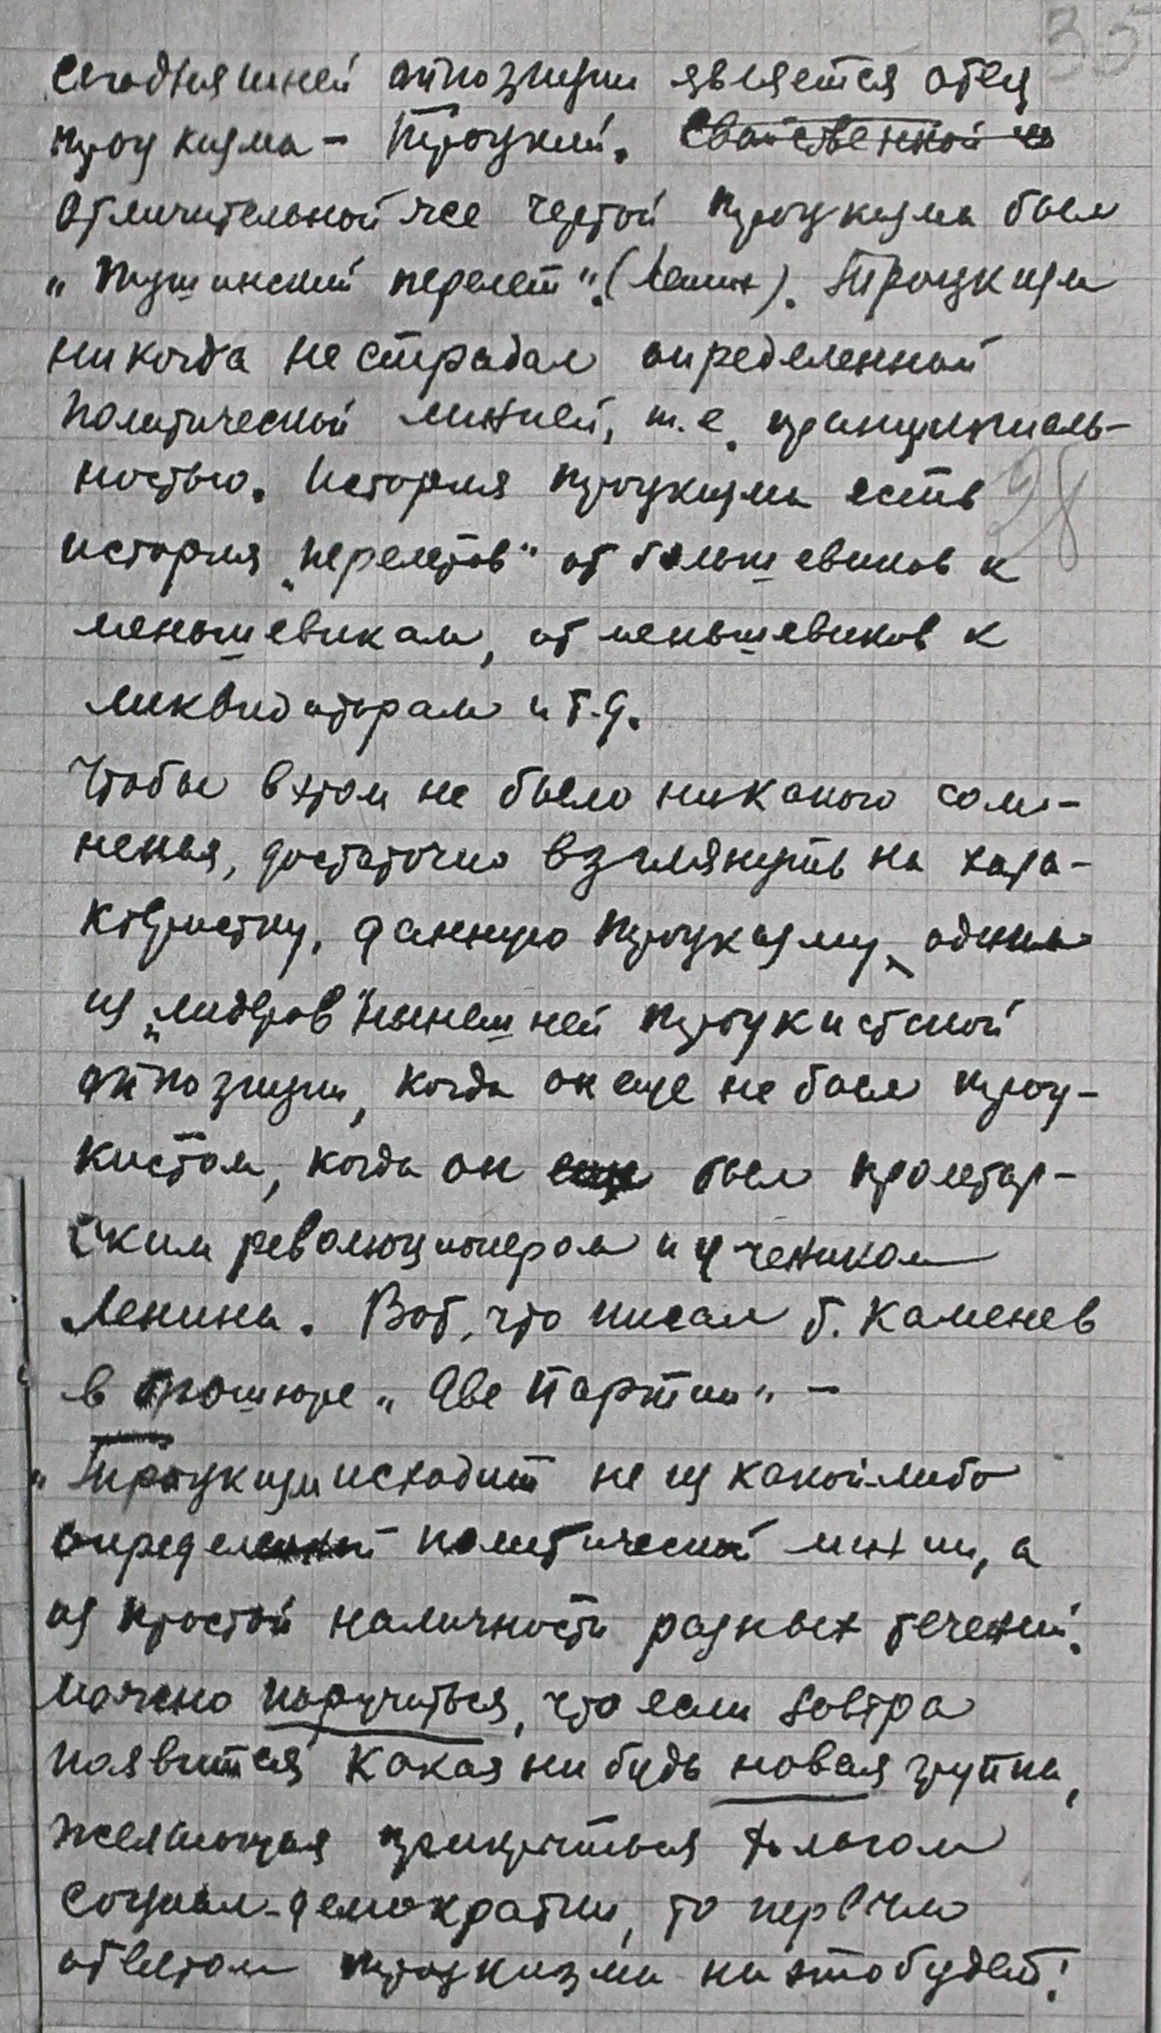 35
сегодняшней оппозиции является отец
троцкизма – Троцкий. Свойственной и
Отличительной же чертой троцкизма был
„Тушинский перелет“. (Ленин). Троцкизм
никогда не страдал определенной
политической линией, т.е. принципиаль-
ностью. История троцкизма есть
28
история „перелетов“ от большевиков к
меньшевикам, от меньшевиков к
ликвидаторам и т.д.
Чтобы в этом не было никакого сом-
ненья, достаточно взглянуть на хара-
ктеристику, данную троцкизму, одним
из „лидеров“ нынешней троцкистской
оппозиции, когда он еще не был троц-
кистом, когда он еще был пролетар-
ским революционером и учеником
Ленина. Вот, что писал т. Каменев
в брошюре „Две партии“ –
„Троцкизм исходит не из какой-либо
определенной политической линии, а
из простой наличности разных течений.
Можно поручиться, что если завтра
появится какая нибудь новая группа,
желающая прикрыться флагом
социал-демократии, то первым
ответом троцкизма на это будет!